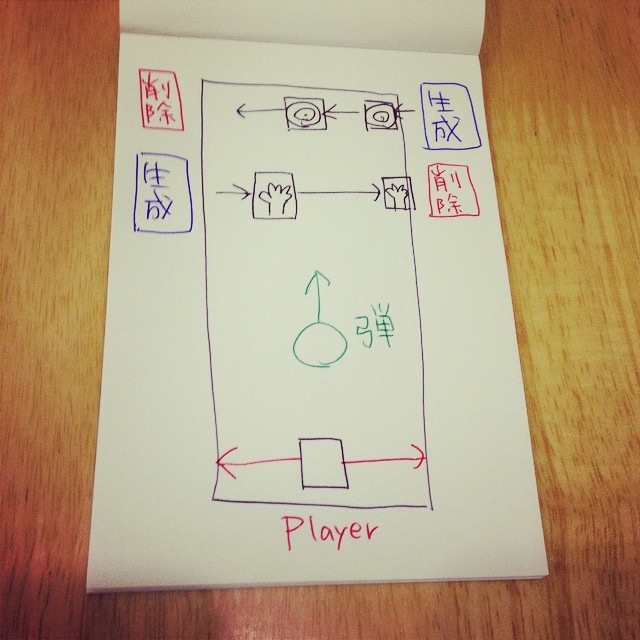 削除
生成
生成
削除
弾
Player